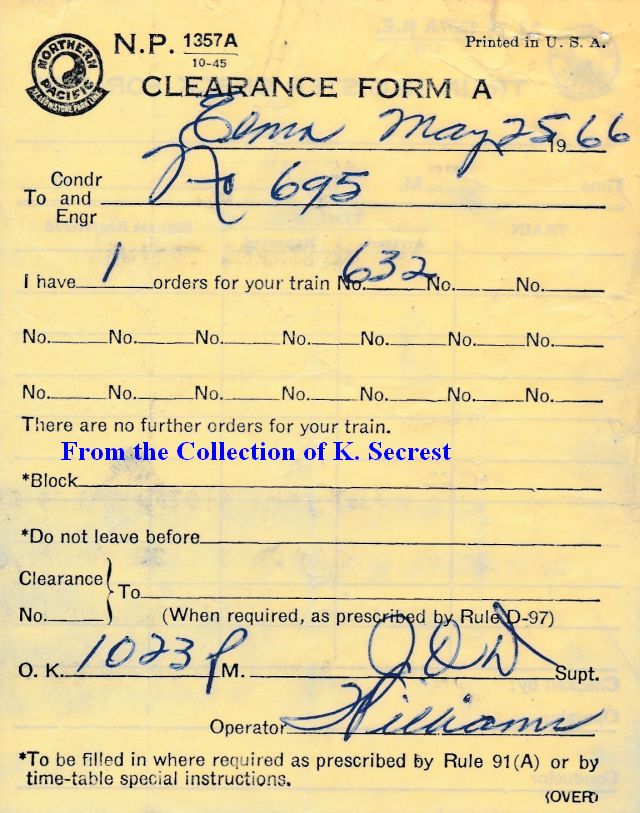 NORTHERN PACIFIC
YELLOWSTONE PARK LINE
N.P. 1357A
10-45
Printed in U. S. A.
CLEARANCE FORM A
Elma May 25 1966
To Condr and Engr No 695
I have 1 orders for your train No. 632 No. No.
No. No. No. No. No. No. No.
No. No. No. No. No. No. No.
There are no further orders for your train.
From the Collection of K. Secrest
*Block
*Do not leave before
Clearance No. } To
(When required, as prescribed by Rule D-97)
O. K. 1023 P M. JOW Supt.
Operator Williams
*To be filled in where required as prescribed by Rule 91(A) or by
time-table special instructions.
(OVER)